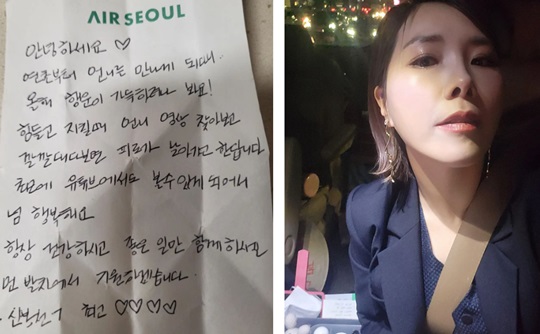 AIR SEOUL
안녕하세요 ♡
연초부터 언니를 만나게 되다니
올해 행운이 가득하려나 봐요!
힘들고 지칠때 언니 영상 찾아보고
깔깔대다보면 피로가 날아가곤 한답니다
최근에 유튜브에서도 볼수있게 되어서
넘 행복해요
항상 건강하시고 좋은 일만 함께하시길
먼 발치에서 기원하겠습니다.
최고 ♡♡♡♡